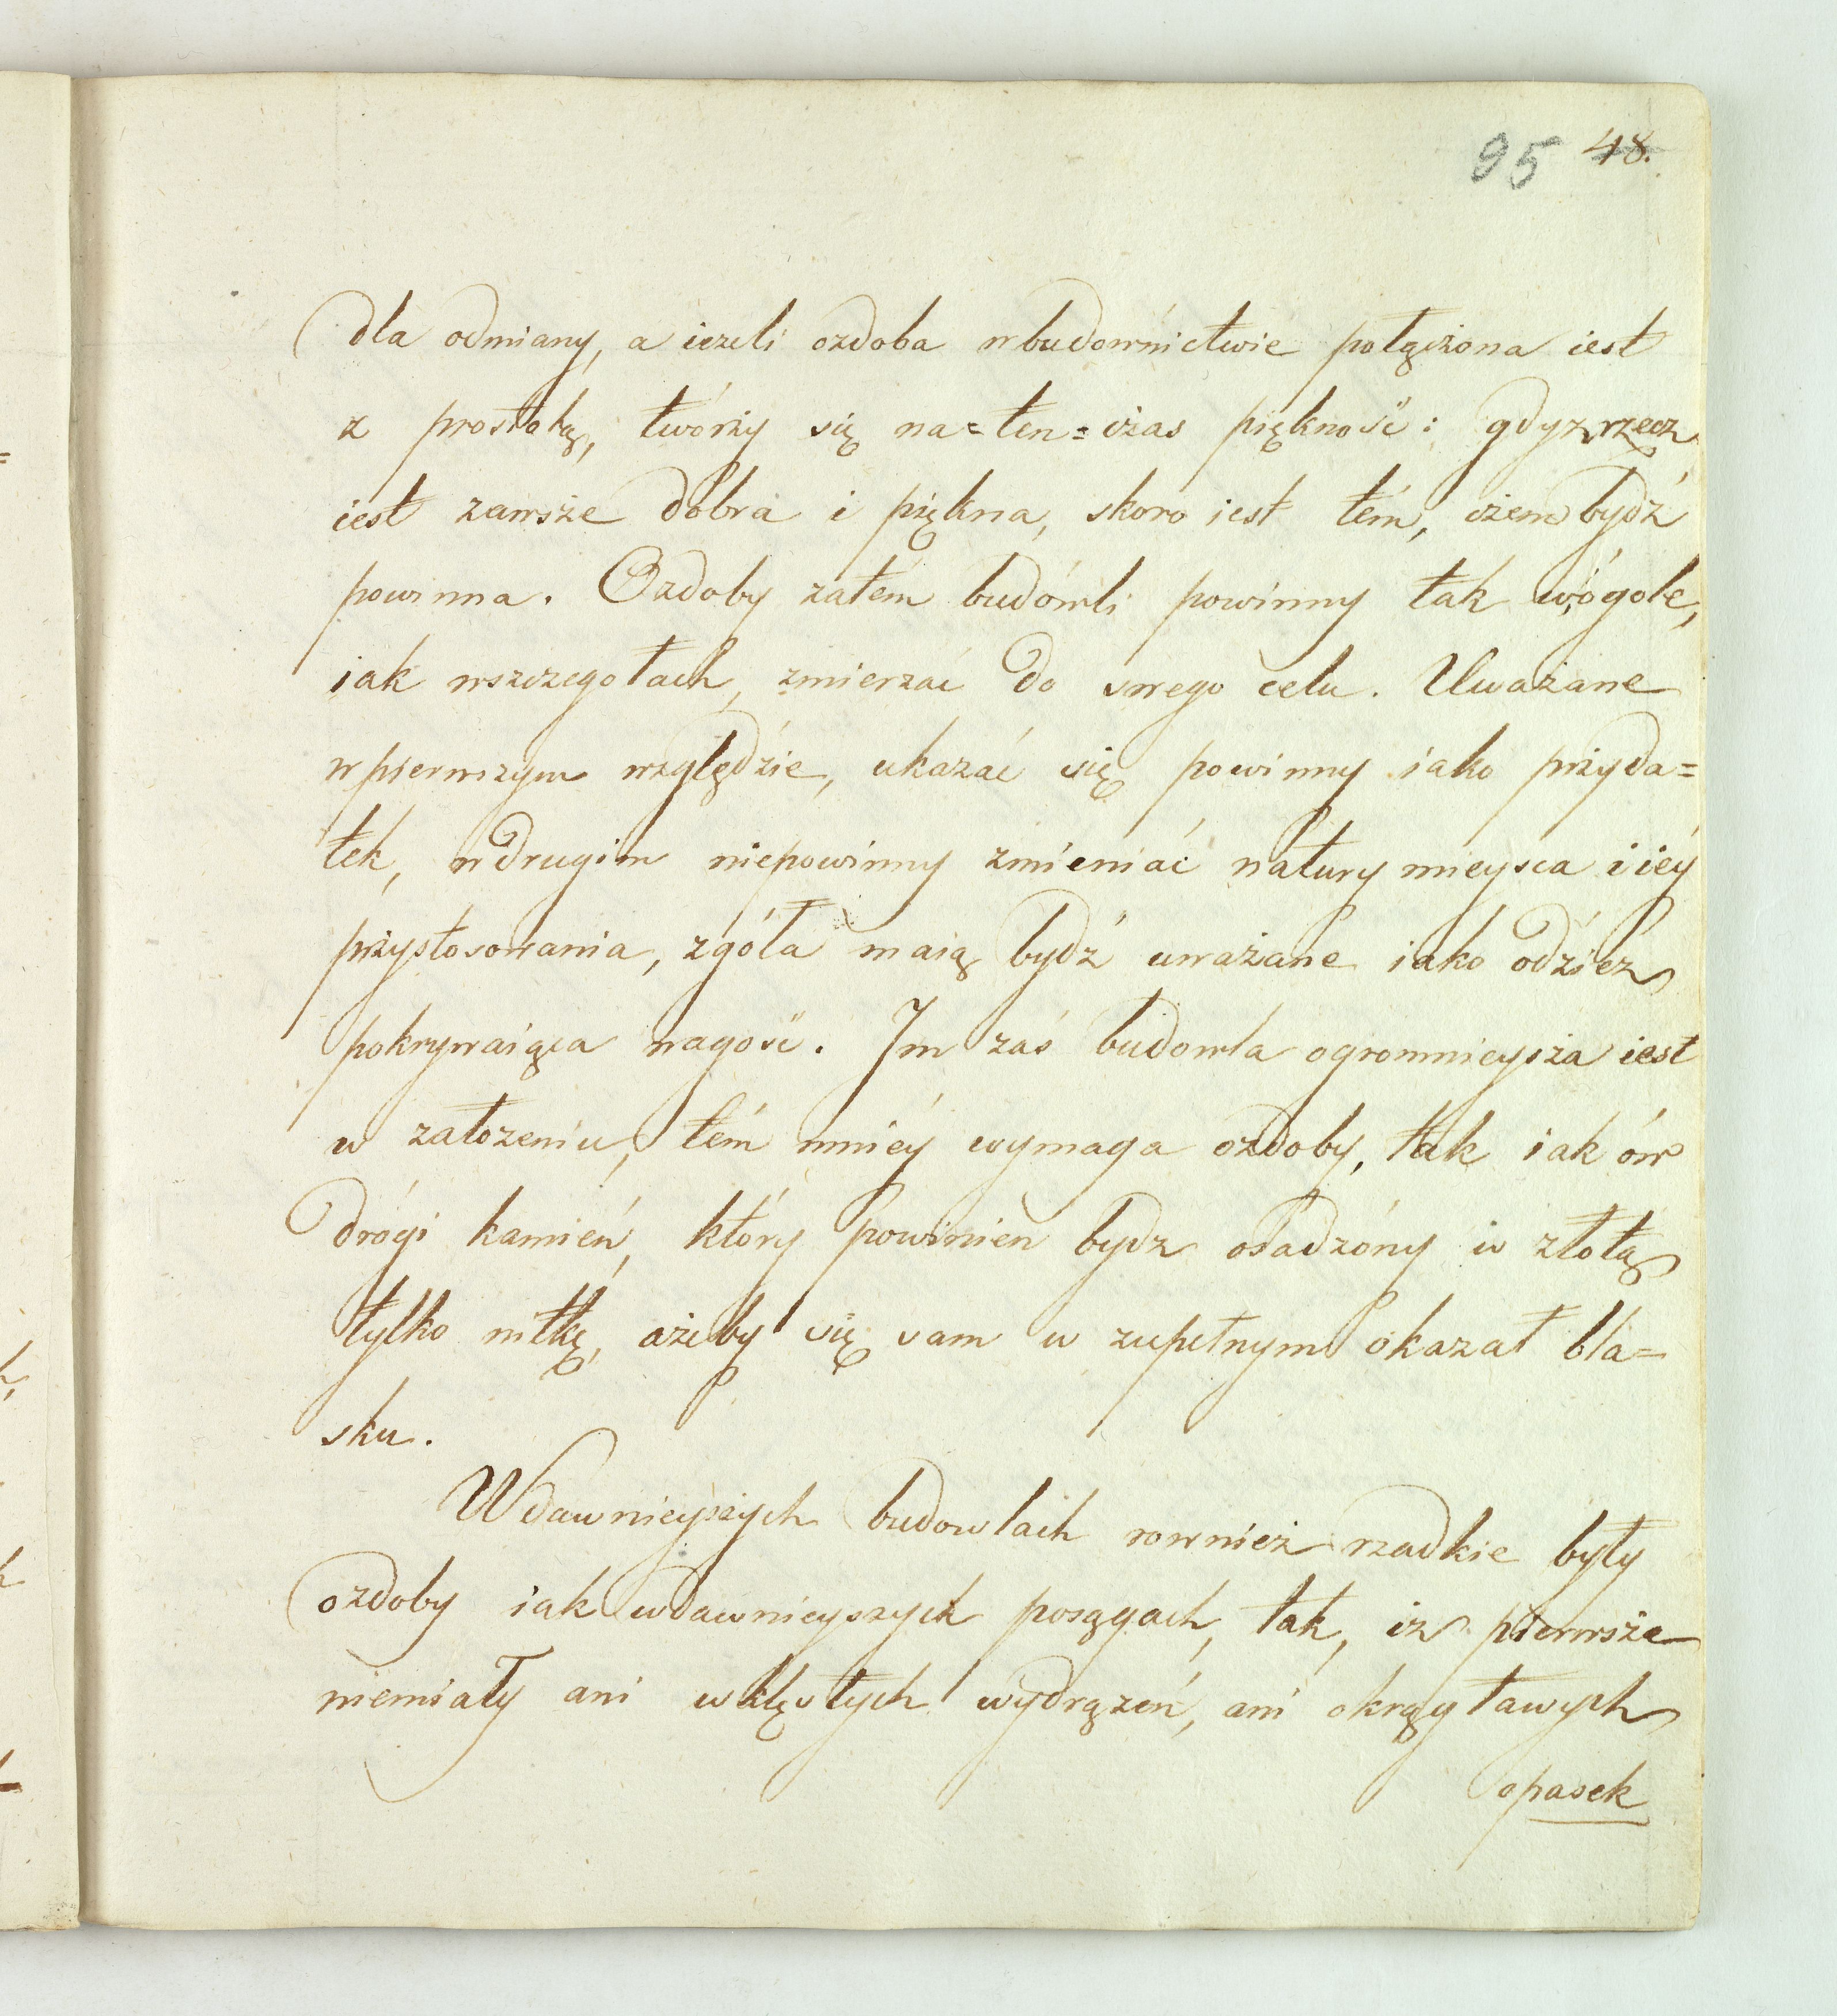 95 48.
dla odmiany, a ieżeli ozdoba w budownictwie połączona iest
z prostotą, tworzy się na=ten=czas piękność: gdyż rzecz
iest zawsze dobra i piękna, skoro iest tém, czem bydź
powinna. Ozdoby zatém budowli powinny tak w ogole,
iak wszczegołach, zmierzać do swego celu. Uważane
w pierwszym względzie, ukazać się powinny iako przyda=
tek, w drugim niepowinny zmieniać natury mieysca i iéy
przystosowania, zgoła maią bydź uważane iako odzież
pokrywaiąca nagość. Im zaś budowla ogromnieysza iest
w założeniu, tém mniéy wymaga ozdoby, tak iak ów
drógi kamień, który powinien bydz osadzóny w złotą
tylko nitkę, ażeby się sam w zupełnym okazał bla=
sku.
W dawnieyszych budowlach rownież rzadkie były
ozdoby iak w dawnieyszych posągach, tak, iż pierwsze
niemiały ani wklęsłych wydrążeń, ani okrągławych
opasek